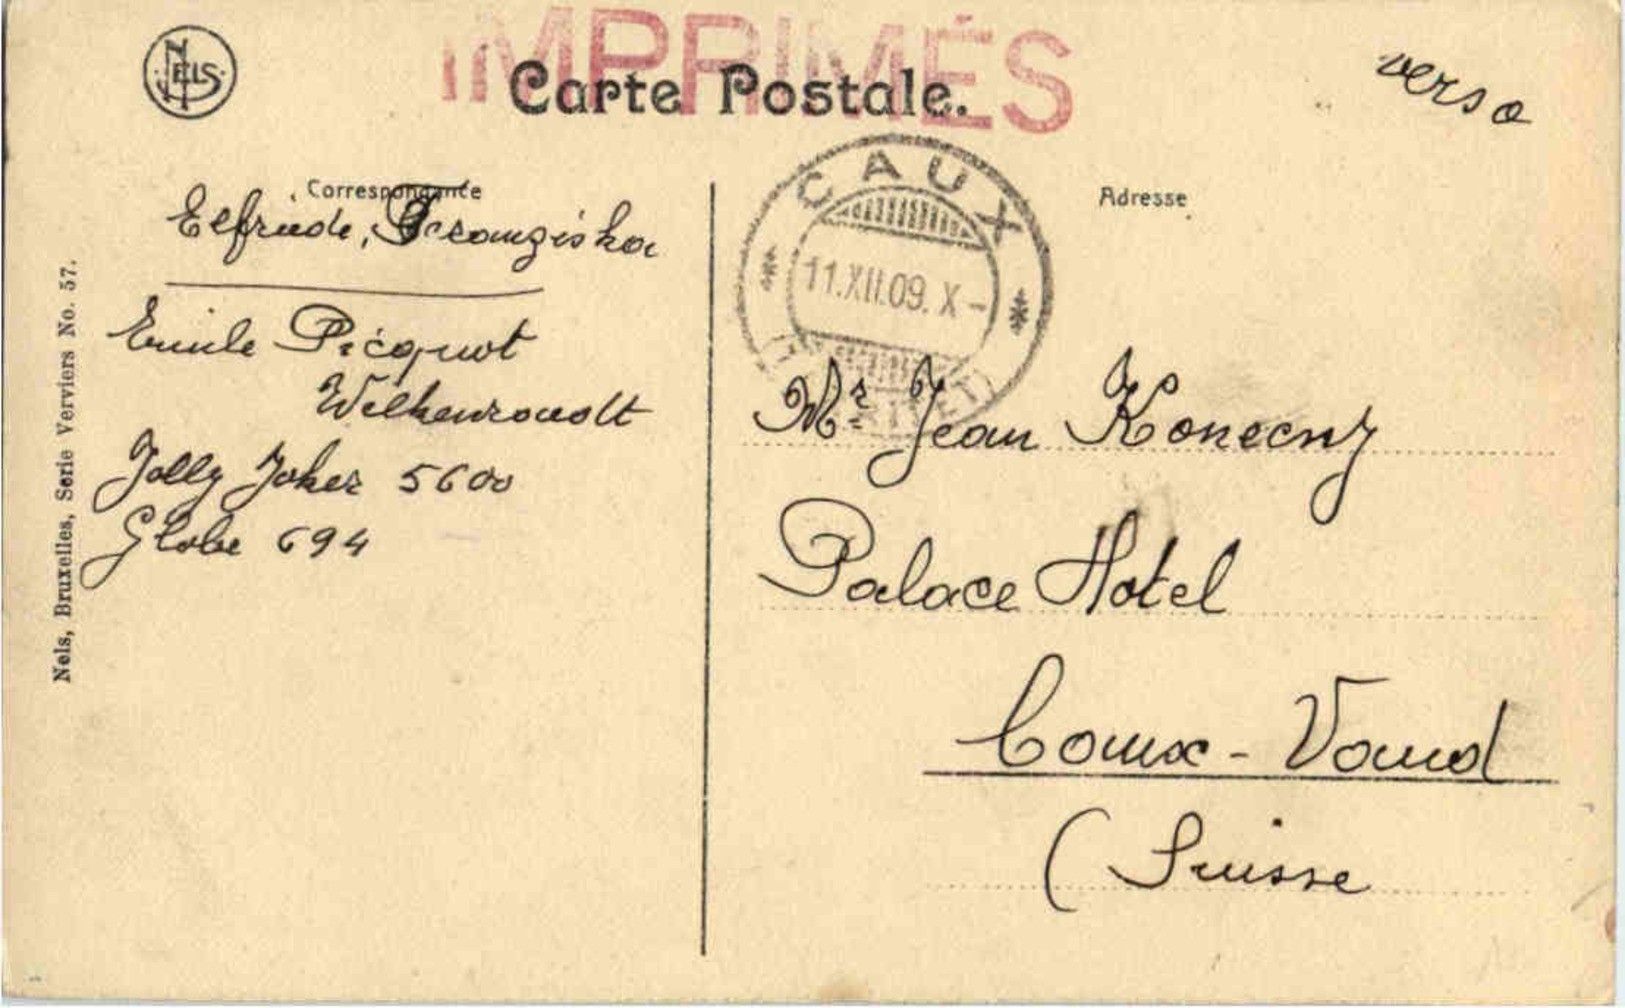 NELS
IMPRIMÉS
Carte Postale.
verso
Correspondance
Elfriede, Franziska
Emile Picquot
Welkenraedt
Jolly Joker 5600
Globe 694
Nels, Bruxelles, Serie Verviers No. 57.
CAUX
11.XII.09. X-
Adresse
Mr. Jean Konecny
Palace Hotel
Caux - Vaud
(Suisse